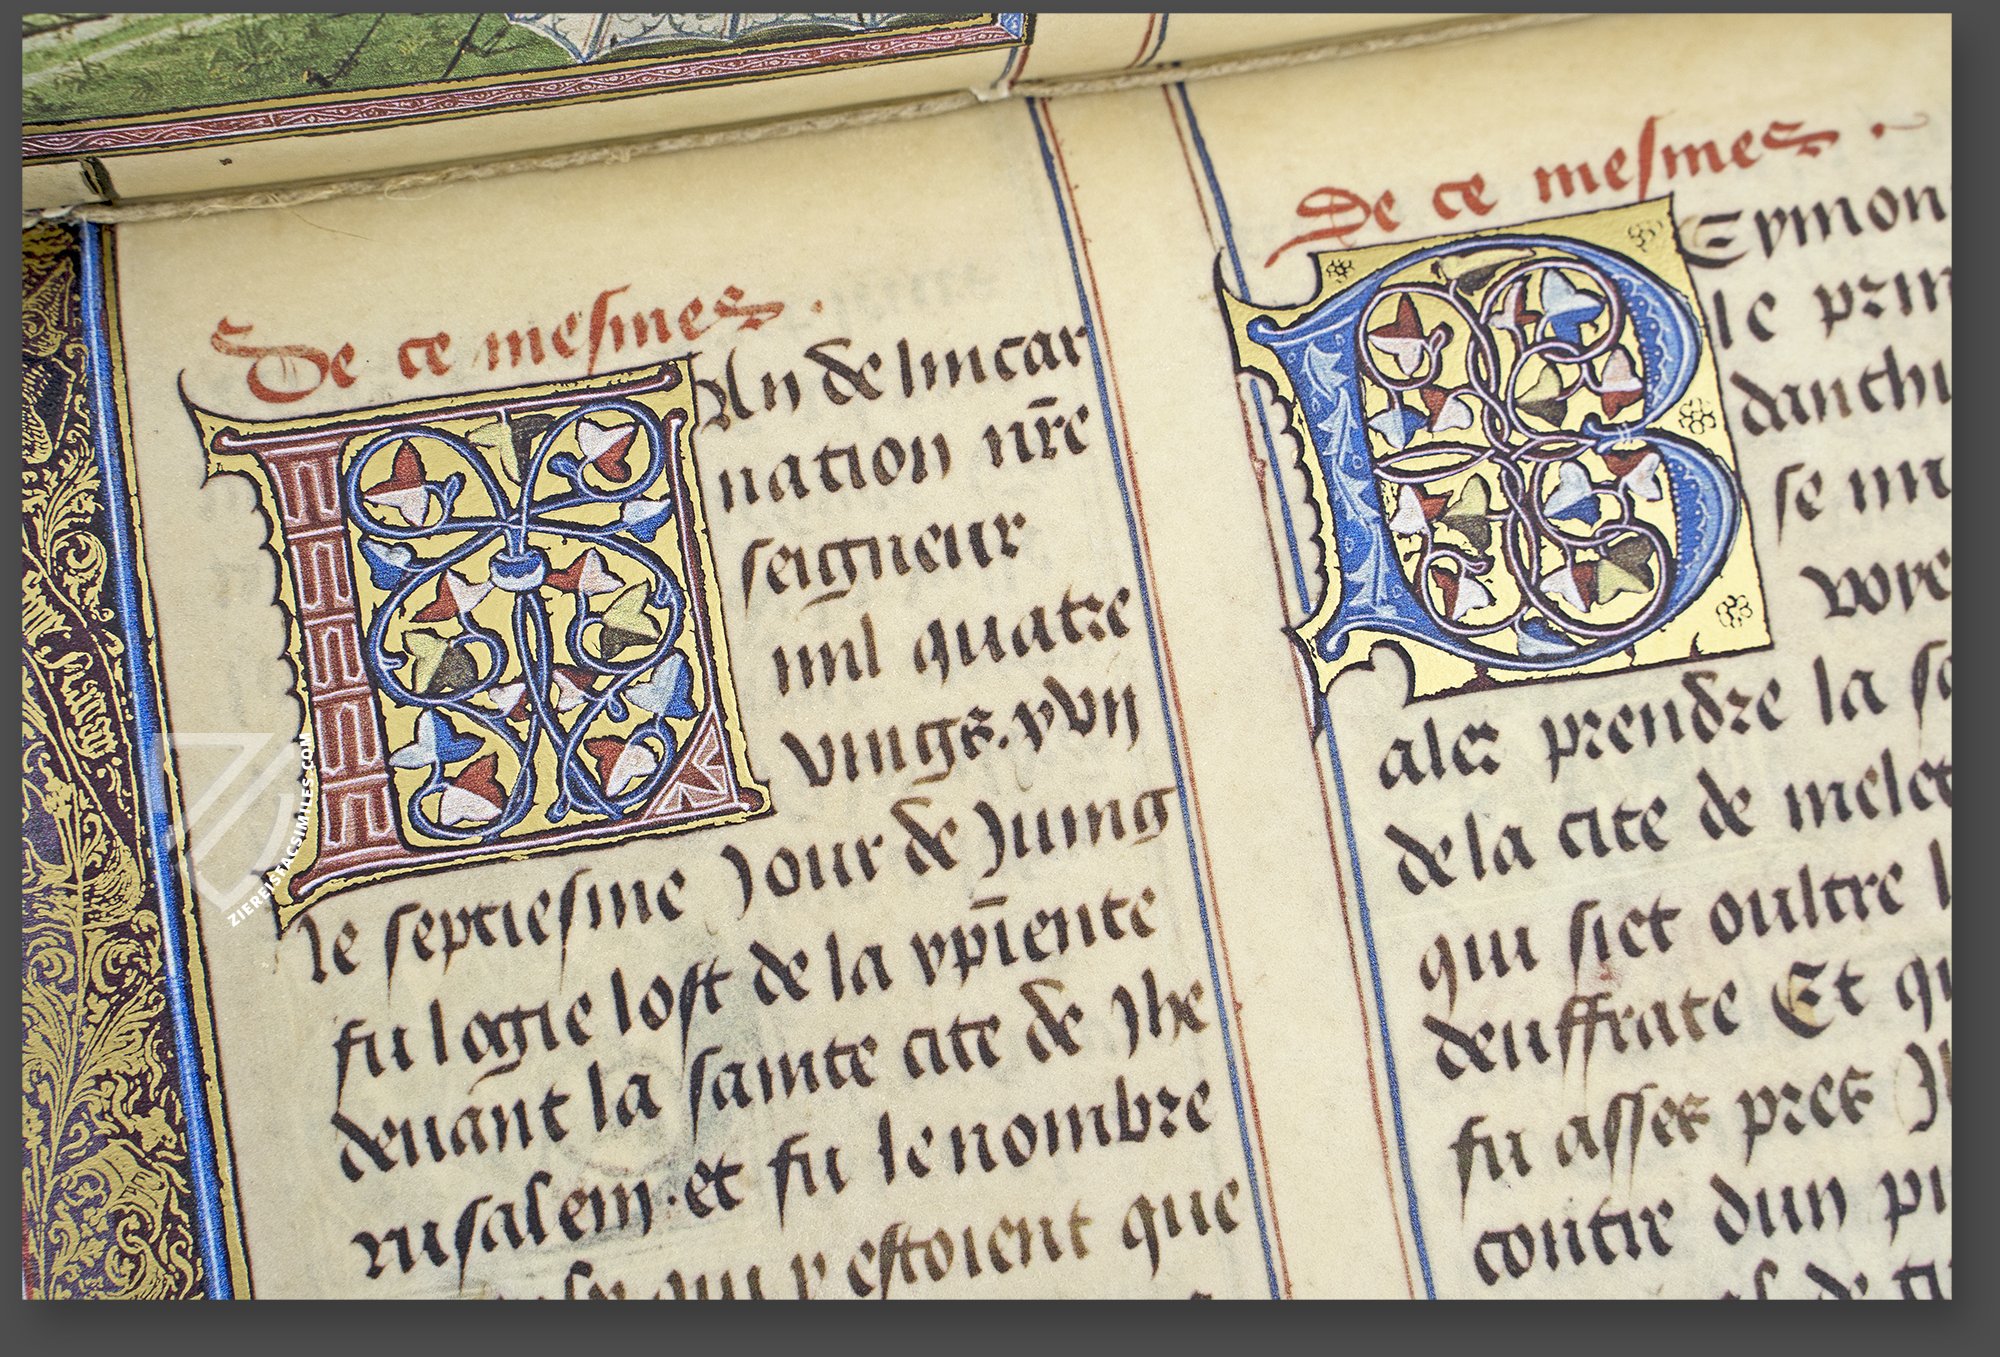 De ce mesmes .
An de lincar
nation nr̄e
seigneur
mil quatre
vings. xvij
le septiesme jour de juing
fu logie lost de la xp̄iente
deuant la sainte cite de Jhe
rusalem. et fu le nombre
qui y estoient que
De ce mesmes .
Symon
le prin
danthi
se mi
voye
aler prendre la
de la cite de melet
qui siet oultre l
deuffrate Et q
fu asses pres
contre dun pi
de
ZIEREISFACSIMILES.COM